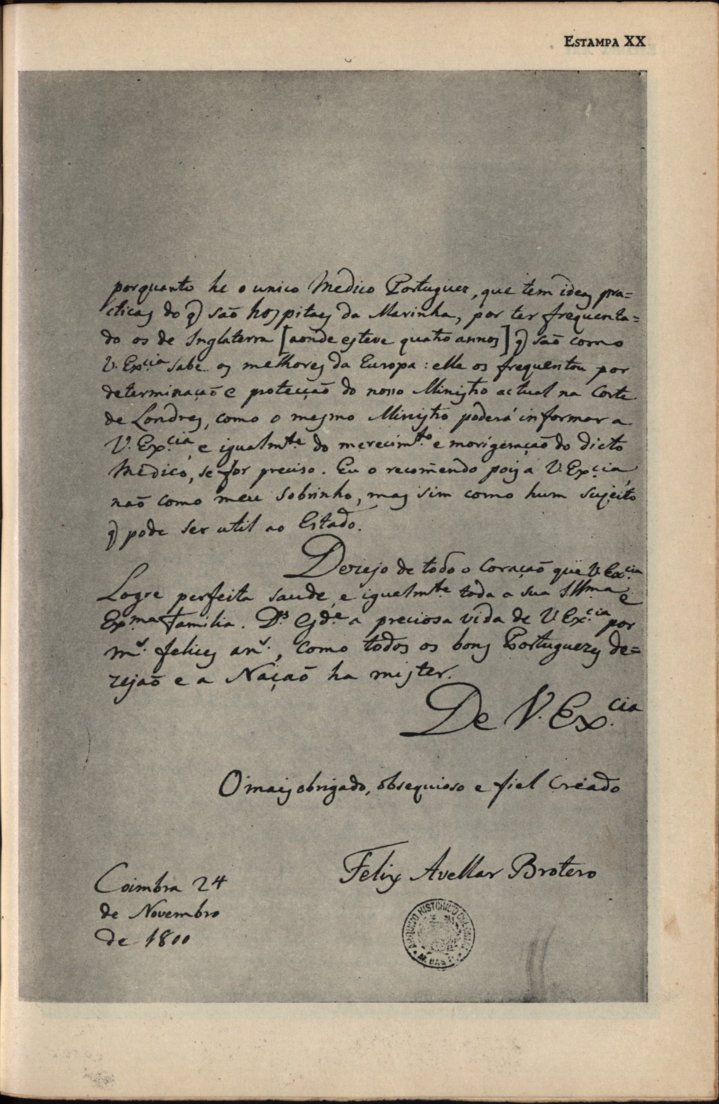 ESTAMPA XX
porquanto he o unico Medico Portuguez, que tem ideas pra=
cticas do q̃ são hospitaes da Marinha, por ter frequenta-
do os de Inglaterra [aonde esteve quatro annos] q̃ são como
V. Ex.cia sabe os melhores da Europa: elle os frequentou por
determinação e protecção do nosso Ministro actual na Corte
de Londres, como o mesmo Ministro poderá informar a
V. Ex.cia, e igualm.te do merecim.to e morigeração do dicto
Medico, se for preciso. Eu o recomendo pois a V. Ex.cia
não como meu sobrinho, mas sim como hum sujeito
q̃ pode ser util ao Estado.
Dezejo de todo o coração que V. Ex.cia
Logre perfeita saude e igualm.te toda a sua Ill.ma e
Ex.ma familia. D.s G.de a preciosa vida de V. Ex.cia por
m.s felices an.s, como todos os bons Portuguezes de=
zejão e a Nação ha mister.
De V. Ex.cia
O mais obrigado, obsequioso e fiel Creado
Felix Avellar Brotero
Coimbra 24
de Novembro
de 1800
ARQUIVO HISTORICO COLONIAL